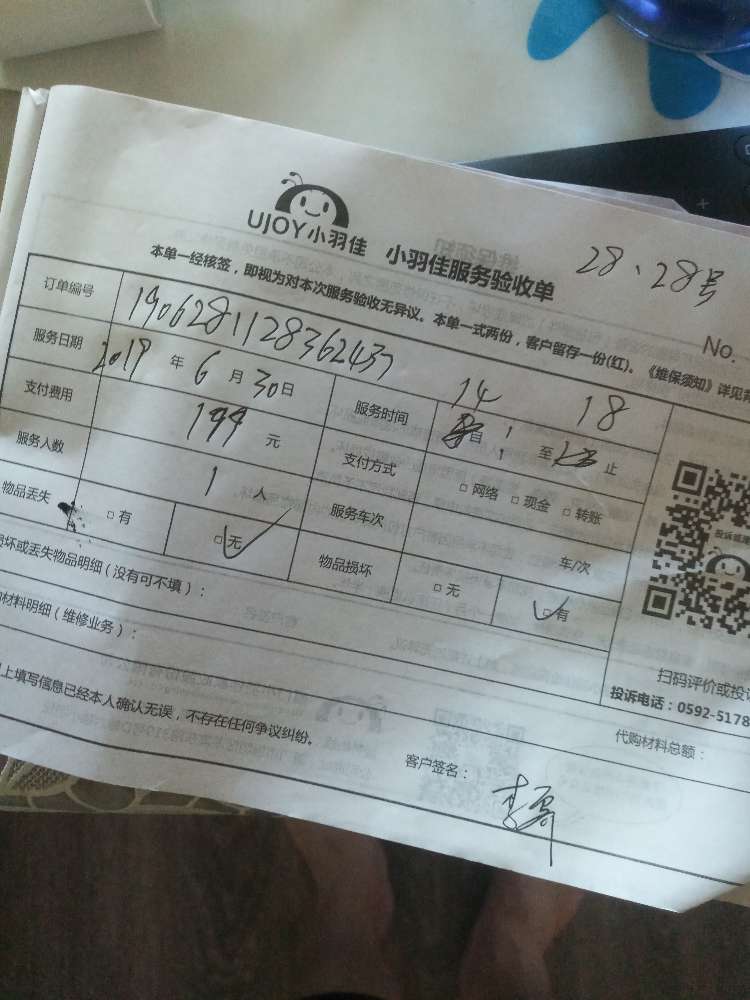 UJOY小羽佳 小羽佳服务验收单
28、28号
本单一经核签，即视为对本次服务验收无异议。本单一式两份，客户留存一份(红)。《维保须知》详见背
No.
订单编号 190628112836243
服务日期 2019 年 6 月 30 日 服务时间 14 自 至 18 止
支付费用 199 元 支付方式 □ 网络 □ 现金 □ 转账
服务人数 1 人 服务车次 车/次
物品丢失 □ 有 □ 无 物品损坏 □ 无 □ 有
损坏或丢失物品明细（没有可不填）：
材料明细（维修业务）：
投诉
扫码评价或投诉
投诉电话：0592-5178
代购材料总额：
上填写信息已经本人确认无误，不存在任何争议纠纷。
客户签名：